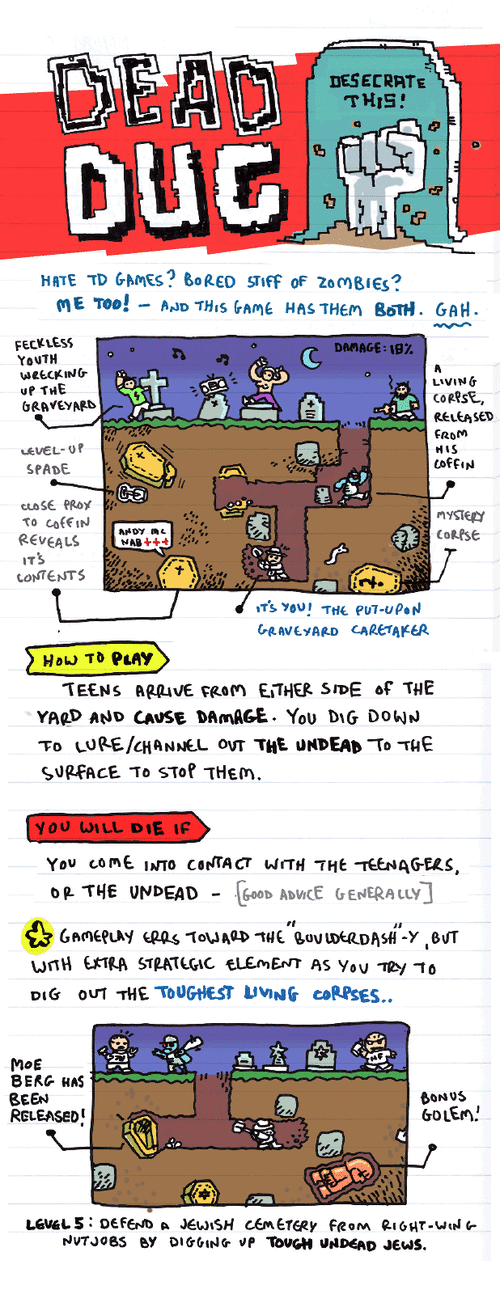 DEAD
DUG
DESECRATE
THIS!
HATE TD GAMES? BORED STIFF OF ZOMBIES?
ME TOO! – AND THIS GAME HAS THEM BOTH. GAH.
FECKLESS
YOUTH
WRECKING
UP THE
GRAVEYARD
LEVEL-UP
SPADE
CLOSE PROX
TO COFFIN
REVEALS
IT'S
CONTENTS
DAMAGE: 18%
ANDY MC
NAB +++
A
LIVING
CORPSE,
RELEASED
FROM
HIS
COFFIN
MYSTERY
CORPSE
IT'S YOU! THE PUT-UPON
GRAVEYARD CARETAKER
HOW TO PLAY
TEENS ARRIVE FROM EITHER SIDE OF THE
YARD AND CAUSE DAMAGE. YOU DIG DOWN
TO LURE/CHANNEL OUT THE UNDEAD TO THE
SURFACE TO STOP THEM.
YOU WILL DIE IF
YOU COME INTO CONTACT WITH THE TEENAGERS,
OR THE UNDEAD – [GOOD ADVICE GENERALLY]
GAMEPLAY ERRS TOWARD THE "BOULDERDASH"-Y, BUT
WITH EXTRA STRATEGIC ELEMENT AS YOU TRY TO
DIG OUT THE TOUGHEST LIVING CORPSES..
MOE
BERG HAS
BEEN
RELEASED!
BONUS
GOLEM!
LEVEL 5: DEFEND A JEWISH CEMETERY FROM RIGHT-WING
NUTJOBS BY DIGGING UP TOUGH UNDEAD JEWS.